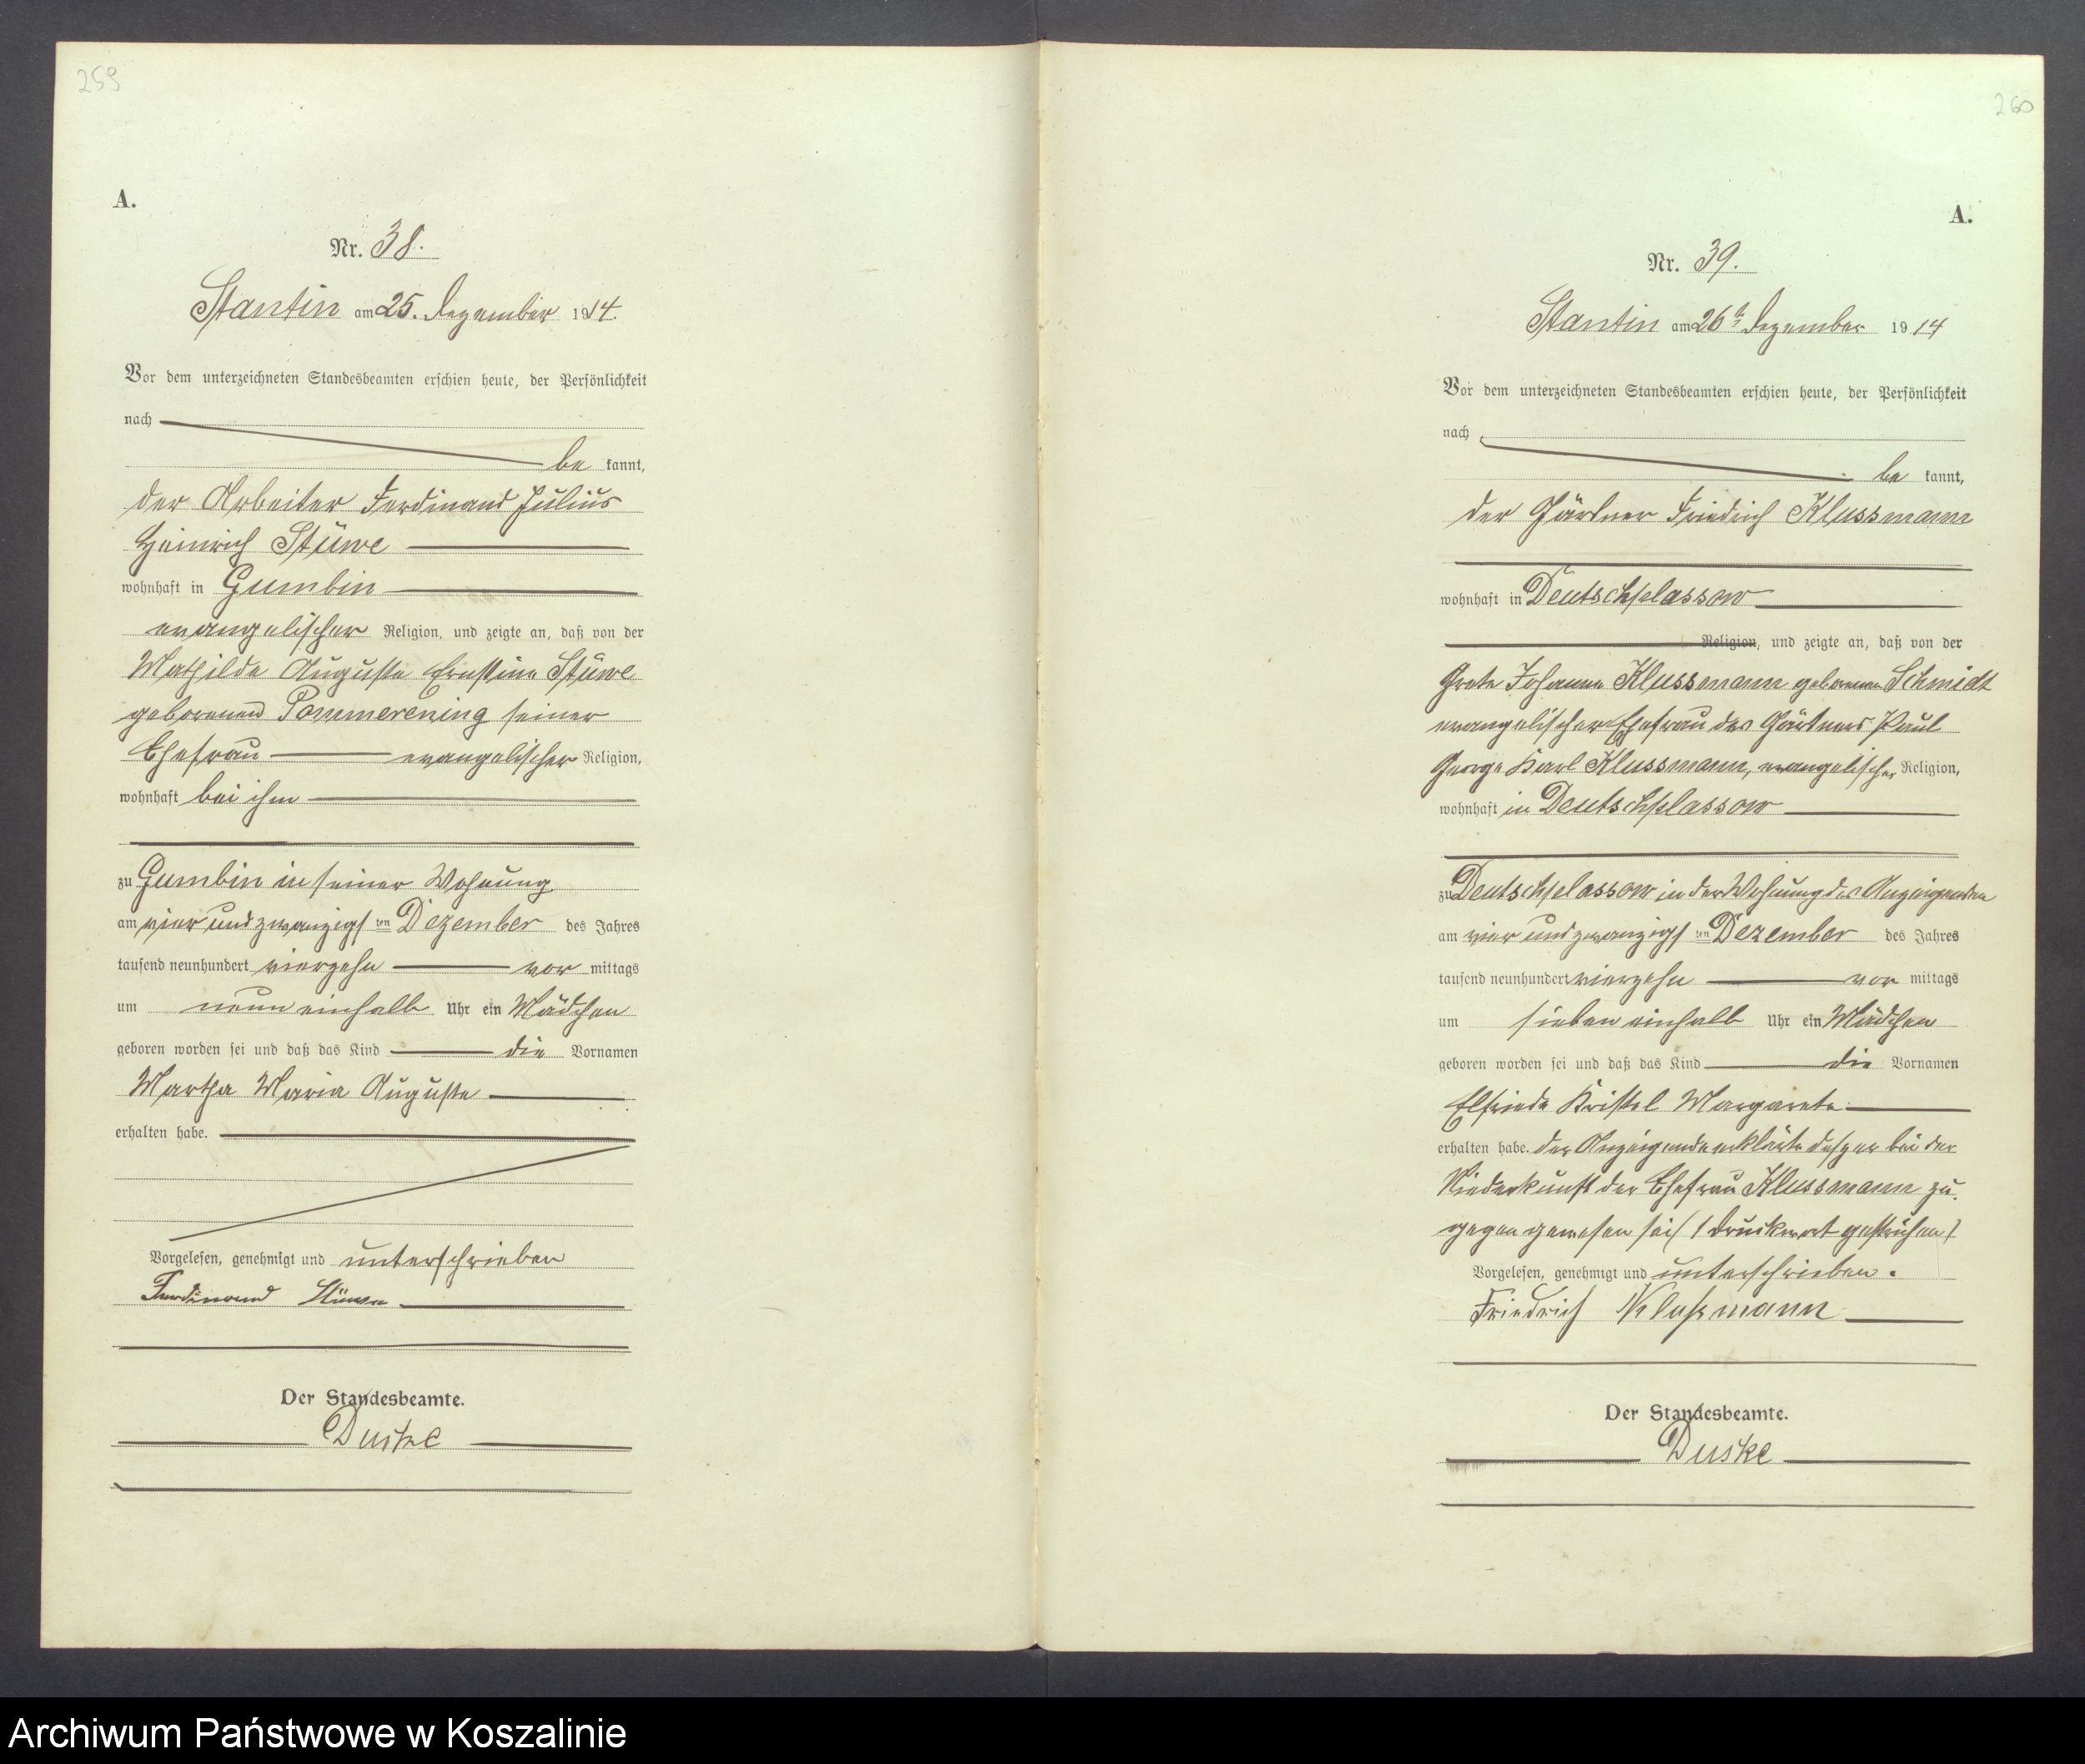 259
A.
Nr. 38.
Stantin am 25. Dezember 1914.
Vor dem unterzeichneten Standesbeamten erschien heute, der Persönlichkeit
nach
be kannt,
der Arbeiter Ferdinand Julius
Heinrich Stüwe
wohnhaft in Gumbin
evangelischer Religion, und zeigte an, daß von der
Mathilde Auguste Ernstine Stüwe
geborenen Pommerening seiner
Ehefrau evangelischer Religion,
wohnhaft bei ihm
zu Gumbin in seiner Wohnung
am vier und zwanzigs ten Dezember des Jahres
tausend neunhundert vierzehn vor mittags
um neun einhalb Uhr ein Mädchen
geboren worden sei und daß das Kind die Vornamen
Martha Maria Auguste
erhalten habe.
Vorgelesen, genehmigt und unterschrieben
Ferdinand Stüwe
Der Standesbeamte.
Duske
260
A.
Nr. 39.
Stantin am 26ts Dezember 1914
Vor dem unterzeichneten Standesbeamten erschien heute, der Persönlichkeit
nach
be kannt,
der Gärtner Friedrich Klussmann
wohnhaft in Deutschplassow
Religion, und zeigte an, daß von der
Grete Johanna Klussmann geborenen Schmidt
evangelischer Ehefrau des Gärtners Paul
George Karl Klussmann, evangelischer Religion,
wohnhaft in Deutschplassow
zu Deutschplassow in der Wohnung des Anzeigenden
am vier und zwanzigs ten Dezember des Jahres
tausend neunhundert vierzehn vor mittags
um sieben einhalb Uhr ein Mädchen
geboren worden sei und daß das Kind die Vornamen
Elfriede Kristel Margarete
erhalten habe. der Anzeigende erklärte daß er bei der
Niederkunft der Ehefrau Klussmann zu¬
gegen gewesen sei (1 Druckwort gestrichen)
Vorgelesen, genehmigt und unterschrieben.
Friedrich Klußmann
Der Standesbeamte.
Duske
Archiwum Państwowe w Koszalinie